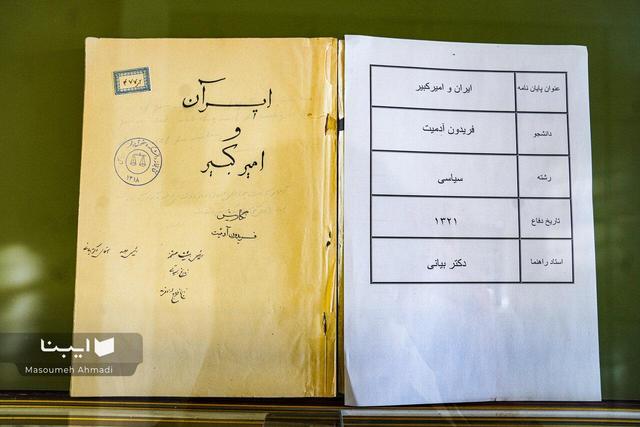 ایران
و
امیرکبیر
نگارش
فریدون آدمیت
۱۳۱۸
عنوان پایان نامه
ایران و امیرکبیر
دانشجو
فریدون آدمیت
رشته
سیاسی
تاریخ دفاع
۱۳۲۱
استاد راهنما
دکتر بیانی
ایبنا
Masoumeh Ahmadi